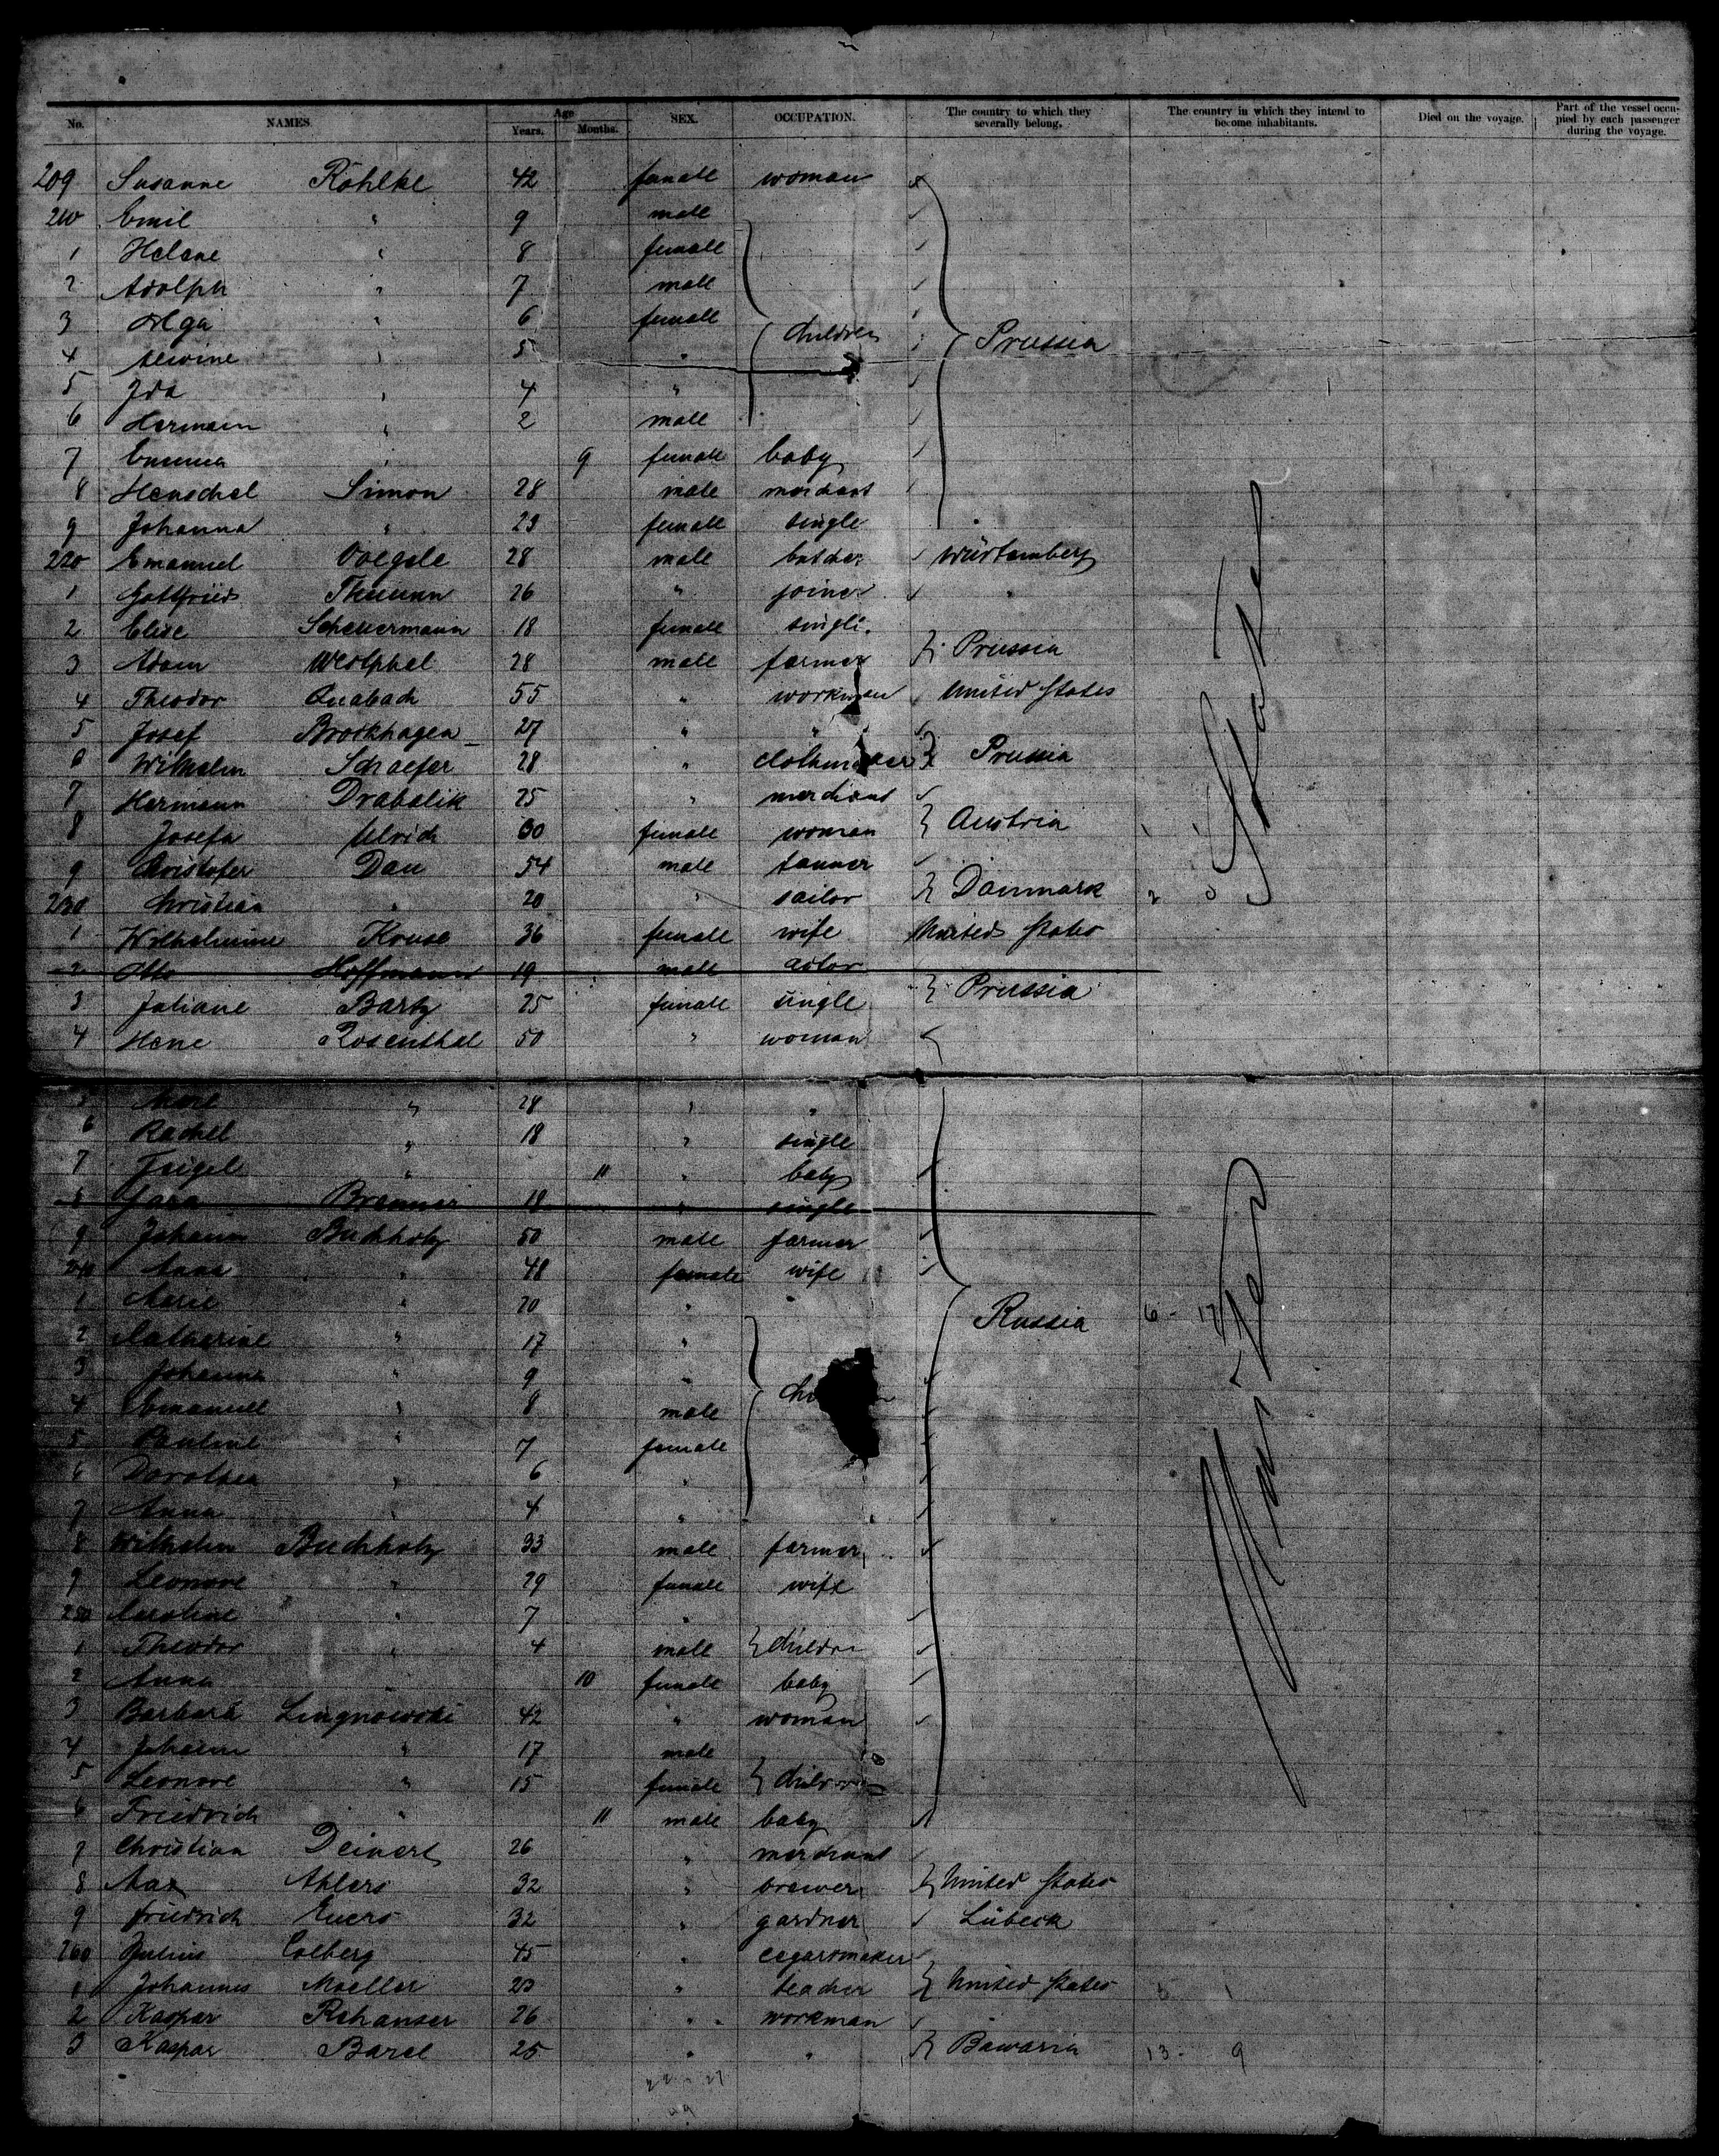 No. NAMES. Age Years. Months. SEX. OCCUPATION. The country to which they severally belong. The country in which they intend to become inhabitants. Died on the voyage. Part of the vessel occupied by each passenger during the voyage.
209 Susanne Röhlke 42 female woman
210 Emil " 9 male
1 Helene " 8 female
2 Adolph " 7 male
3 Olga " 6 female children Prussia
4 " 5 "
5 Ida " 4 "
6 Hermann " 2 male
7 Emma " 9 female baby
8 Henschel Simon 28 male merchant
9 Johanna " 23 female single
220 Emanuel Voegele 28 male butcher Würtemberg
1 Gottfried 26 " joiner "
2 Elise Scheuermann 18 female single
3 Adam Westphal 28 male farmer } Prussia
4 Theodor Quabach 55 " workman United States
5 Josef Brockhagen 27 " "
6 Wilhelm Schaefer 28 " clothmaker } Prussia
7 Hermann Drabalik 25 " merchant
8 Josefa Ulrich 30 female woman } Austria
9 Christofer Dau 54 male tanner
230 Christian " 20 " sailor } Danmark
1 Wilhelmine Kruse 36 female wife United States
2 Otto Hoffmann 19 male
3 Juliane Bartz 25 female single } Prussia
4 Hene Rosenthal 50 " woman
5 " 28 " "
6 Rachel " 18 " single
7 Feigel " 11 " baby
8 Sara Brenner 18 " single
9 Johann Buchholz 50 male farmer
240 Anna " 48 female wife
1 Marie " 20 " " Russia 6 - 17
2 Catherine " 17 "
3 Johanna " 9 "
4 Emanuell " 8 male
5 Pauline " 7 female
6 Dorothea " 6 "
7 Anna " 4 "
8 Wilhelm Buchholz 33 male farmer
9 Leonore " 29 female wife
250 Karoline " 7 "
1 Theodor " 4 male } children
2 Anna 10 female baby
3 Barbara Lingnowski 42 " woman
4 Johann " 17 male
5 Leonore " 15 female } children
6 Friedrich " 11 male baby
7 Christian Deinert 26 " merchant
8 Max Ahlers 32 " brewer } United States
9 Friedrich Evers 32 " gardner Lübeck
260 Julius Colberg 45 " cegarsmaker
1 Johannes Moeller 23 " teacher } United States
2 Kaspar Rehanser 26 " workman
3 Kaspar Barel 25 " " } Bawaria 13 - 9
United States